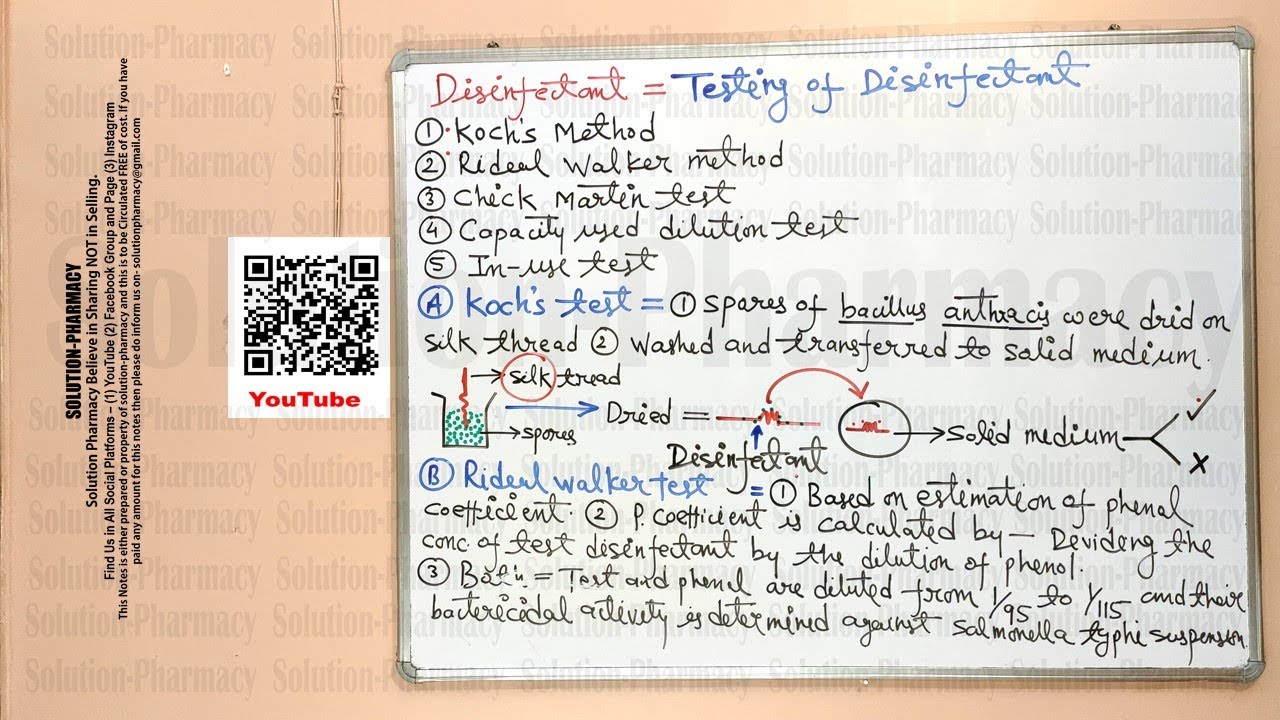 SOLUTION-PHARMACY
Solution Pharmacy Believe in Sharing NOT in Selling.
Find Us in All Social Platforms – (1) YouTube (2) Facebook Group and Page (3) Instagram
This Notes is either prepared or property of solution-pharmacy and this is to be Circulated FREE of cost. If you have
paid any amount for this notes then please do inform us on- solutionpharmacy@gmail.com
YouTube
Solution-Pharmacy
Disinfectant = Testing of Disinfectant
① Koch's Method
② Rideal Walker method
③ Chick Martin test
④ Capacity used dilution test
⑤ In-use test
Ⓐ Koch's test = ① Spares of bacillus anthracis were drid on
silk thread ② Washed and transferred to solid medium.
silk tread
spores
Dried =
Disinfectant
Solid medium
✓
X
Ⓑ Rideal walker test = ① Based on estimation of phenal
coefficient. ② P. coefficient is calculated by — Deviding the
conc. of test disinfectant by the dilution of phenol.
③ Both = Test and phenal are diluted from 1/95 to 1/115 and their
bactericidal activity is determined against salmonella typhi suspension